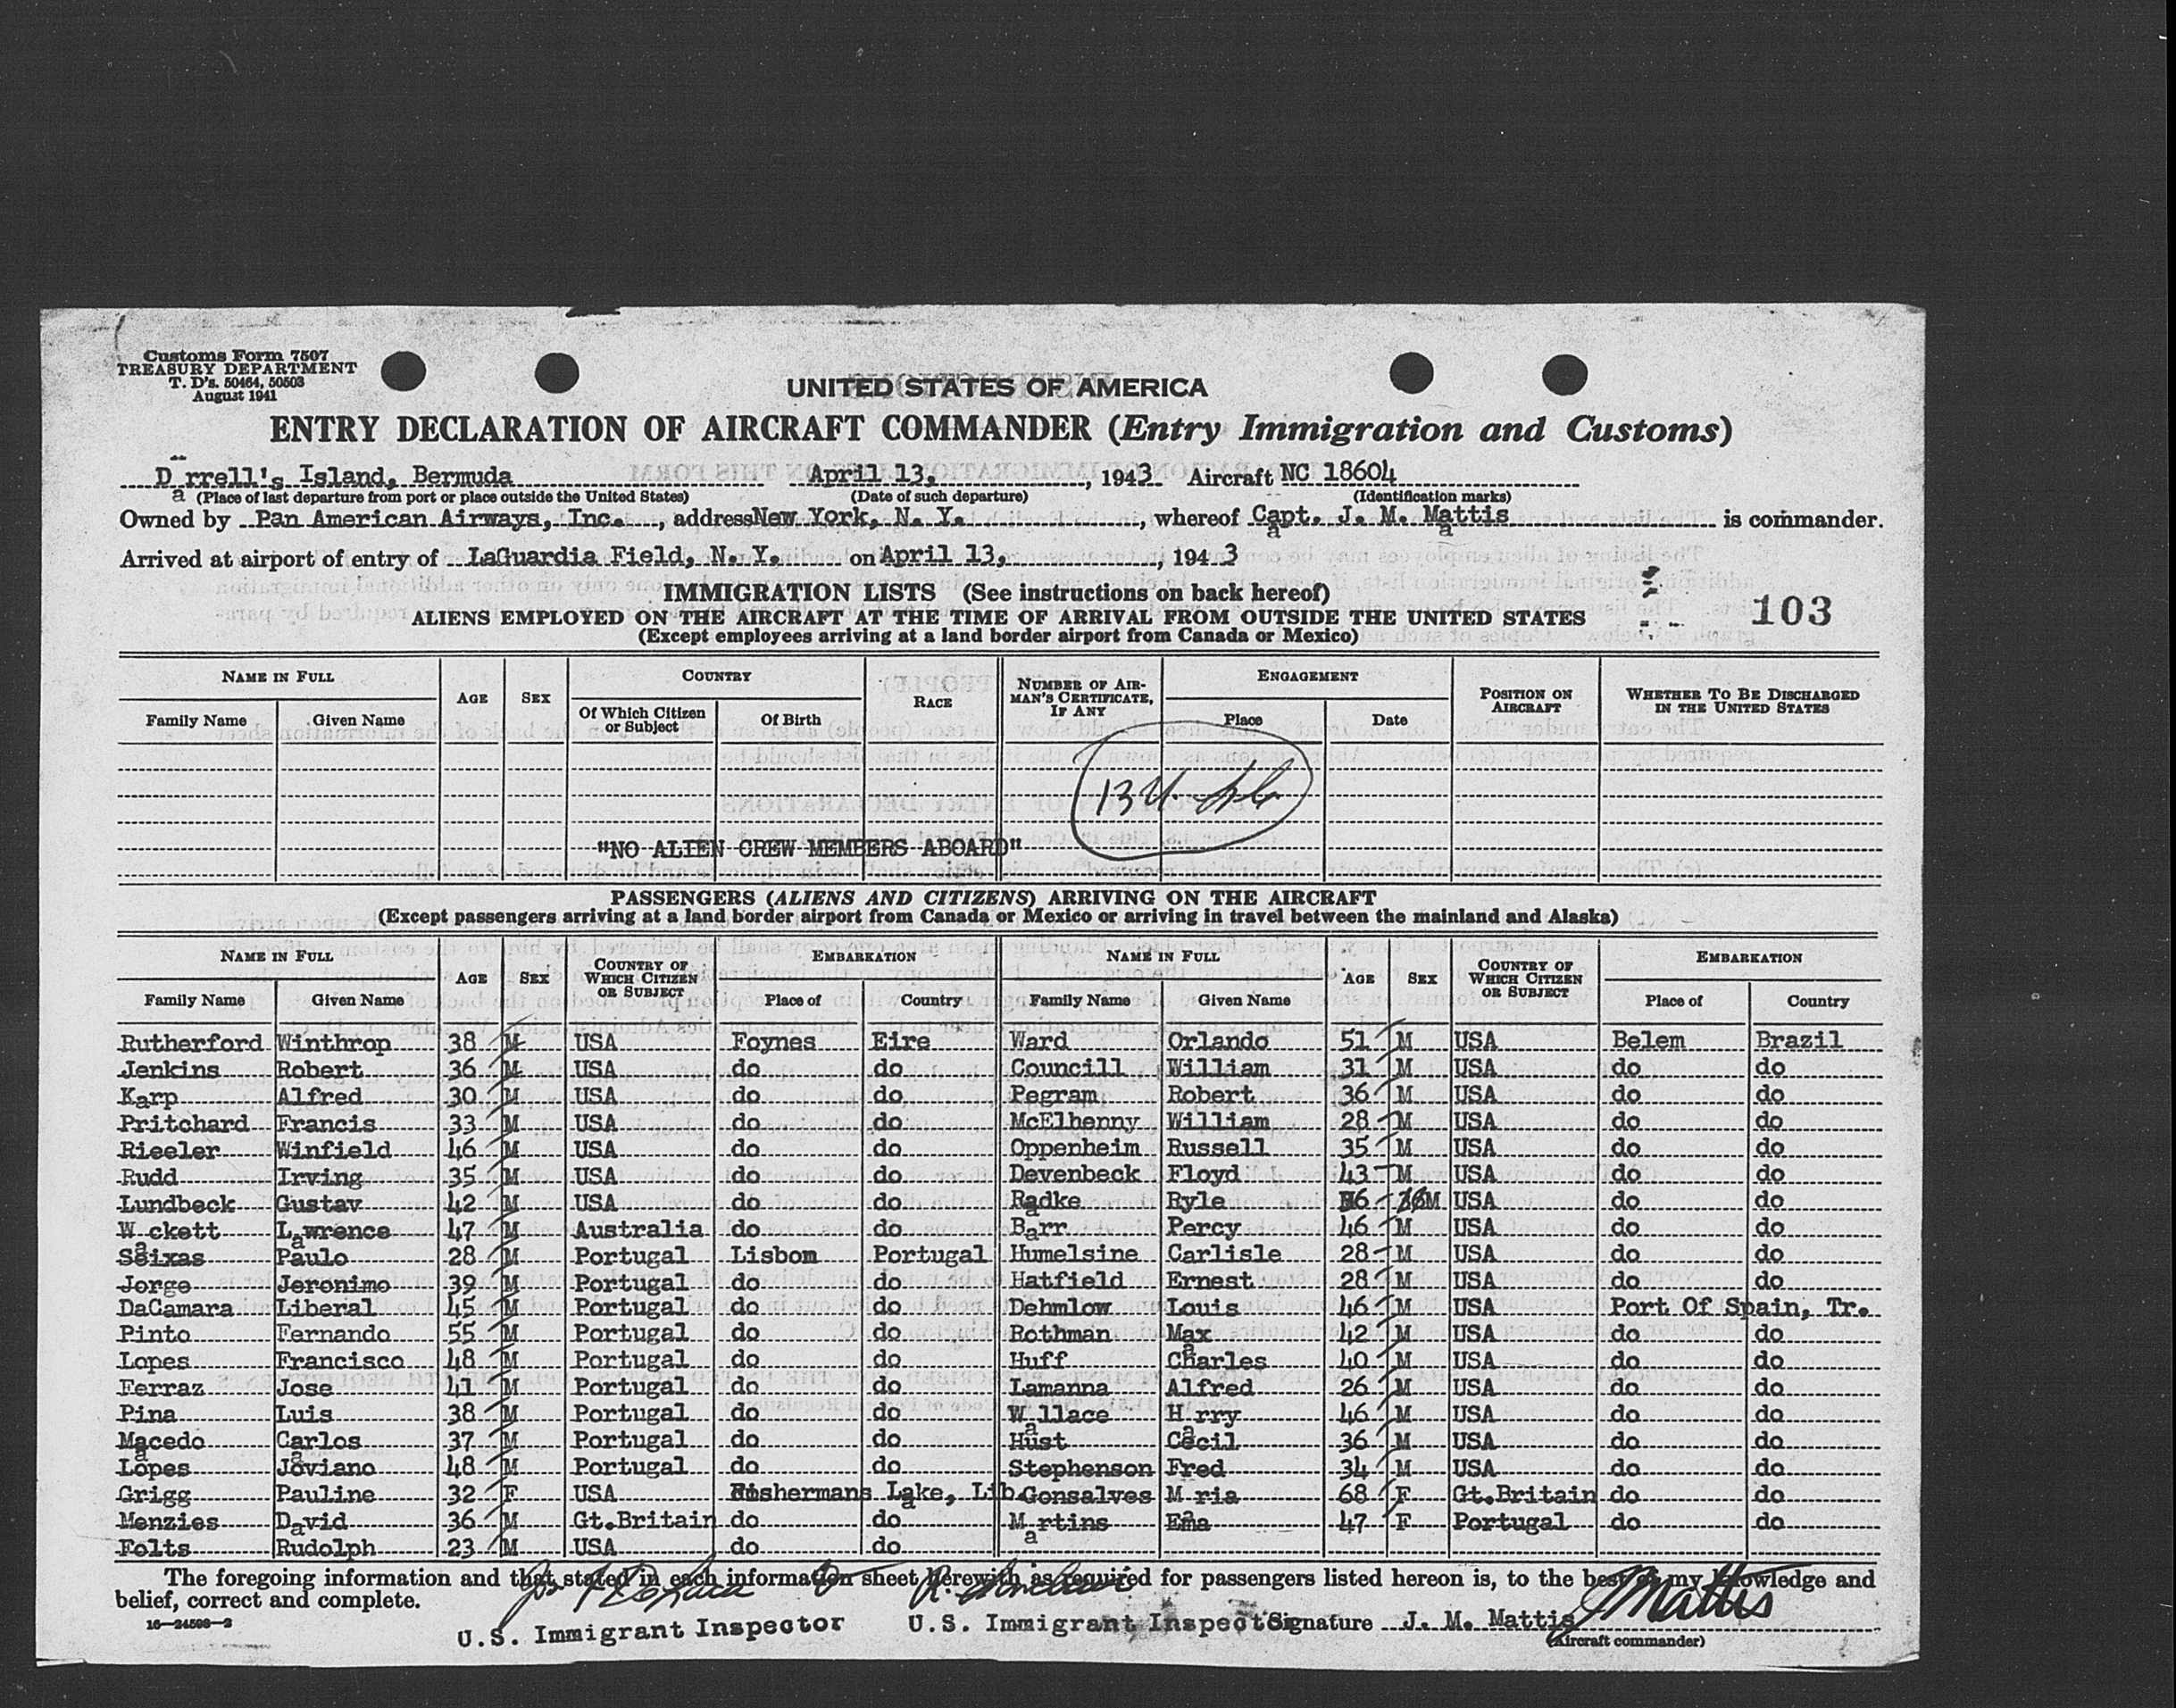 Customs Form 7507
TREASURY DEPARTMENT
T. D's. 50464, 50503
August 1941
UNITED STATES OF AMERICA
ENTRY DECLARATION OF AIRCRAFT COMMANDER (Entry Immigration and Customs)
Darrell's Island, Bermuda April 13, , 1943 Aircraft NC 18604
(Place of last departure from port or place outside the United States) (Date of such departure) (Identification marks)
Owned by Pan American Airways, Inc. , address New York, N. Y. , whereof Capt. J. M. Mattis is commander.
Arrived at airport of entry of LaGuardia Field, N. Y. on April 13, , 1943
IMMIGRATION LISTS (See instructions on back hereof)
103
ALIENS EMPLOYED ON THE AIRCRAFT AT THE TIME OF ARRIVAL FROM OUTSIDE THE UNITED STATES
(Except employees arriving at a land border airport from Canada or Mexico)
NAME IN FULL AGE SEX COUNTRY RACE NUMBER OF AIRMAN'S CERTIFICATE, IF ANY ENGAGEMENT POSITION ON AIRCRAFT WHETHER TO BE DISCHARGED IN THE UNITED STATES
Family Name Given Name Of Which Citizen or Subject Of Birth Place Date
"NO ALIEN CREW MEMBERS ABOARD"
PASSENGERS (ALIENS AND CITIZENS) ARRIVING ON THE AIRCRAFT
(Except passengers arriving at a land border airport from Canada or Mexico or arriving in travel between the mainland and Alaska)
NAME IN FULL AGE SEX COUNTRY OF WHICH CITIZEN OR SUBJECT EMBARKATION NAME IN FULL AGE SEX COUNTRY OF WHICH CITIZEN OR SUBJECT EMBARKATION
Family Name Given Name Place of Country Family Name Given Name Place of Country
Rutherford Winthrop 38 M USA Foynes Eire Ward Orlando 51 M USA Belem Brazil
Jenkins Robert 36 M USA do do Councill William 31 M USA do do
Karp Alfred 30 M USA do do Pegram Robert 36 M USA do do
Pritchard Francis 33 M USA do do McElhenny William 28 M USA do do
Rieeler Winfield 46 M USA do do Oppenheim Russell 35 M USA do do
Rudd Irving 35 M USA do do Devenbeck Floyd 43 M USA do do
Lundbeck Gustav 42 M USA do do Radke Ryle 36 M USA do do
Wackett Lawrence 47 M Australia do do Barr Percy 46 M USA do do
Seixas Paulo 28 M Portugal Lisbon Portugal Humelsine Carlisle 28 M USA do do
Jorge Jeronimo 39 M Portugal do do Hatfield Ernest 28 M USA do do
DaCamara Liberal 45 M Portugal do do Dehmlow Louis 46 M USA Port Of Spain, Tr.
Pinto Fernando 55 M Portugal do do Rothman Max 42 M USA do do
Lopes Francisco 48 M Portugal do do Huff Charles 40 M USA do do
Ferraz Jose 41 M Portugal do do Lamanna Alfred 26 M USA do do
Pina Luis 38 M Portugal do do Wallace Harry 46 M USA do do
Macedo Carlos 37 M Portugal do do Hust Cecil 36 M USA do do
Lopes Joviano 48 M Portugal do do Stephenson Fred 34 M USA do do
Grigg Pauline 32 F USA Fishermans Lake, Lib Gonsalves Maria 68 F Gt.Britain do do
Menzies David 36 M Gt.Britain do do Martins Ema 47 F Portugal do do
Folts Rudolph 23 M USA do do
The foregoing information and that stated in each information sheet herewith as required for passengers listed hereon is, to the best of my knowledge and
belief, correct and complete.
16—24598—2
U.S. Immigrant Inspector U.S. Immigrant Inspector Signature J. M. Mattis JMattis
(Aircraft commander)